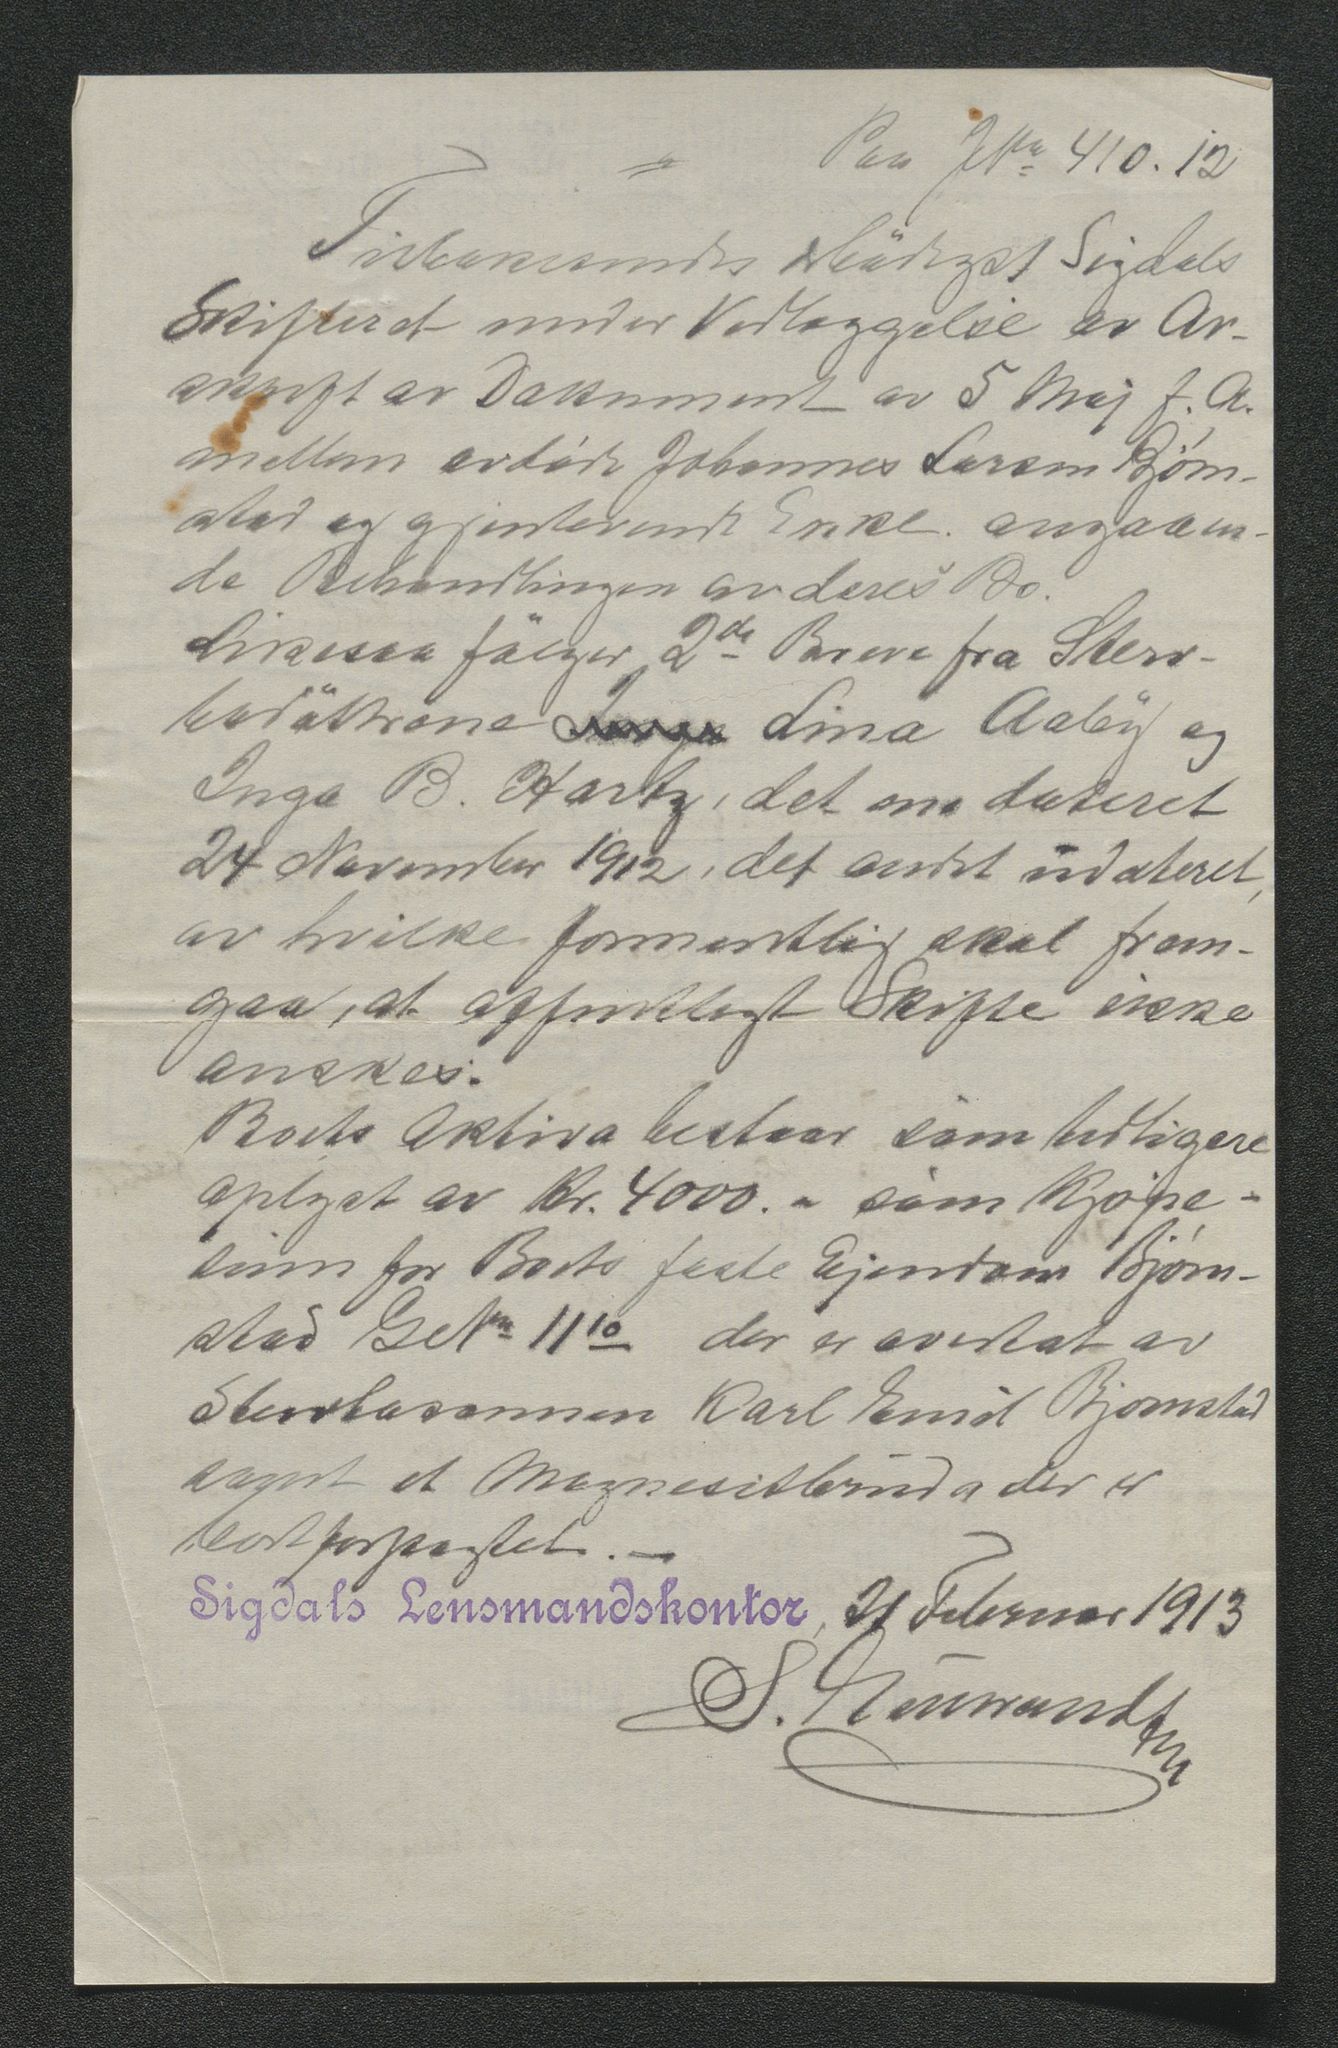 Paa JNr 410.12
Tilbakesendes ærbödigst Sigdals
Skifteret under Vedlæggelse av Av-
skrift av Dokument av 5 Maj f. A.
mellem avdöde Johannes Larsen Bjørn-
stad og gjenlevende Enke angaaen-
de Behandlingen av deres Bo.
Likesaa fölger 2de Breve fra Sterv-
bodöttrene Lina Aaby og
Inga B. Hartz, det ene dateret
24 November 1912, det andet udateret,
av hvilke formentlig skal frem-
gaa, at offentligt Skifte ikke
önskes.
Boets Aktiva bestaar som tidligere
oplyst av Kr. 4000.- som Kjøpe-
sum for Boets faste Ejendom Bjørn-
stad GNr 11 10 der er overtat av
Stervbosønnen Karl Emil Bjørnstad
samt et Magnesitbrud der er
bortforpagtet. —
Sigdals Lensmandskontor, 21 Februar 1913